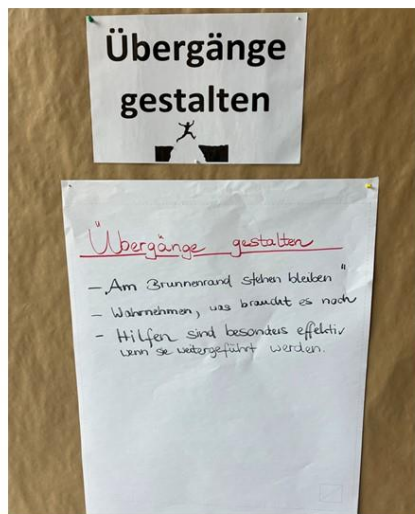 Übergänge
gestalten
Übergänge gestalten
- „Am Brunnenrand stehen bleiben"
- Wahrnehmen, was braucht es noch
- Hilfen sind besonders effektiv
wenn se weitergeführt werden.